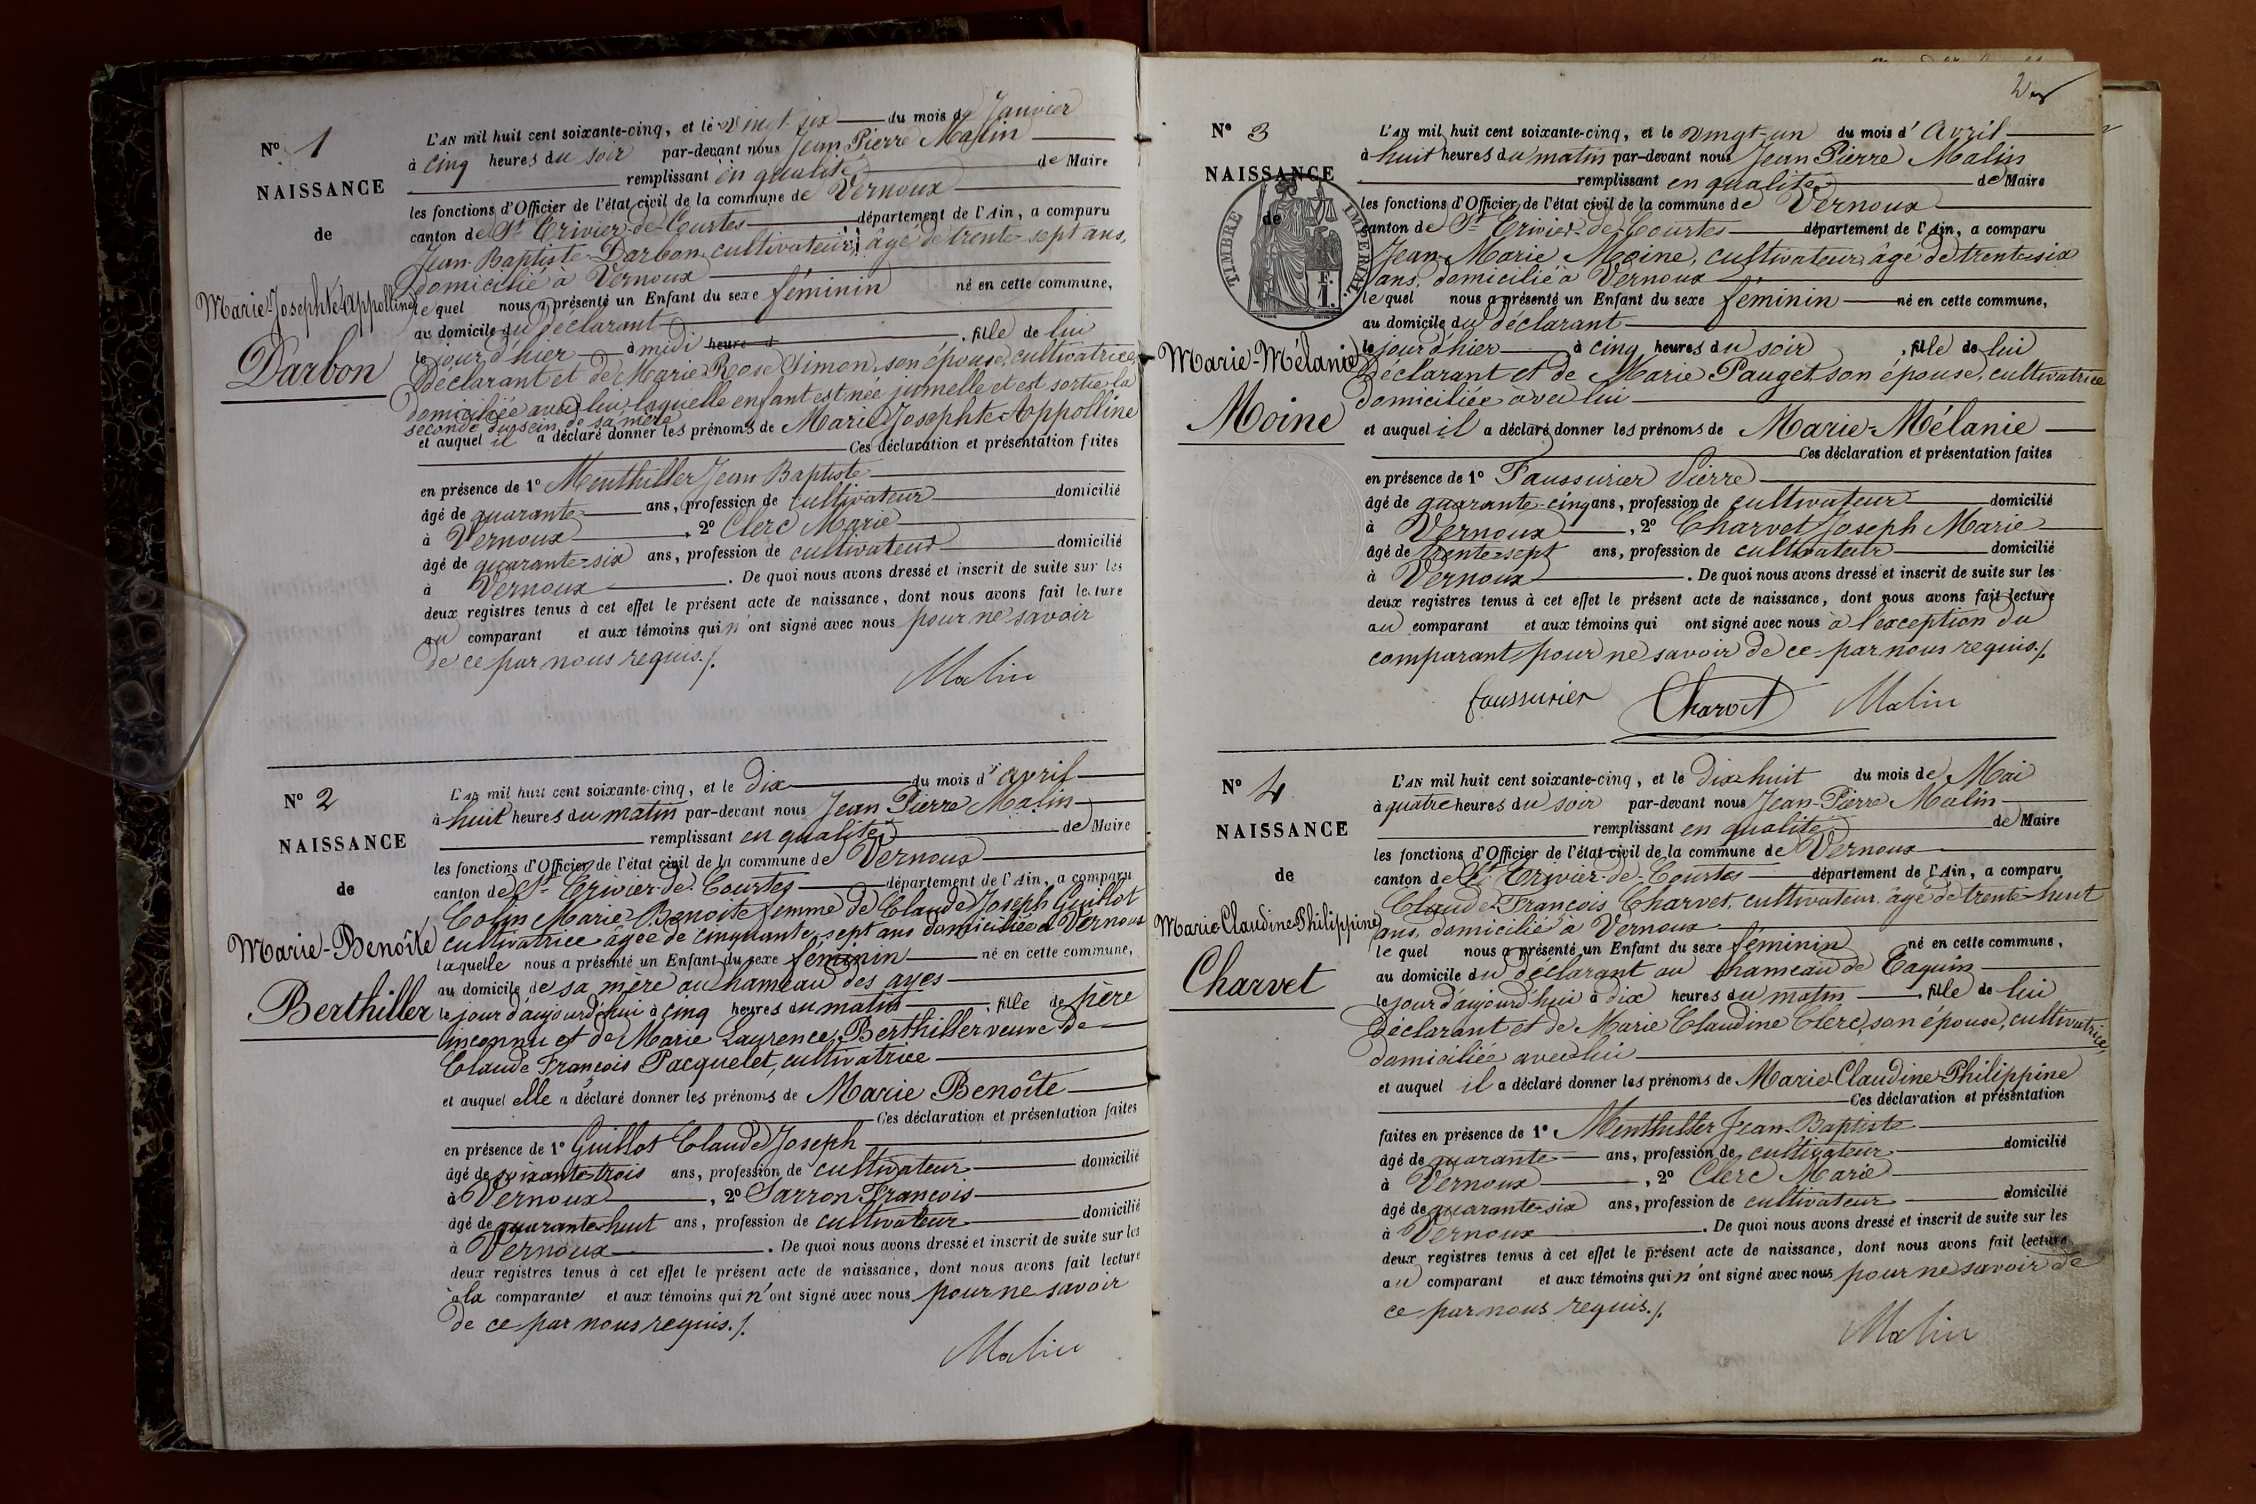 N° 1
NAISSANCE
de
Marie-Josephte-Appolline
Darbon
L'AN mil huit cent soixante-cinq, et le vingt-six du mois de Janvier
à cinq heures du soir par-devant nous Jean Pierre Malin
remplissant en qualité de Maire
les fonctions d'Officier de l'état civil de la commune de Vernoux
canton de St Trivier-de-Courtes département de l'Ain, a comparu
Jean-Baptiste Darbon, cultivateur, âgé de trente-sept ans,
domicilié à Vernoux
lequel nous a présenté un Enfant du sexe féminin né en cette commune,
au domicile du déclarant
le jour d'hier à midi heure d , fille de lui
déclarant et de Marie Rose Simon, son épouse, cultivatrice
domiciliée avec lui, laquelle enfant est née jumelle et est sortie la
seconde du sein de sa mère
et auquel il a déclaré donner les prénoms de Marie Josephte Appolline
Ces déclaration et présentation faites
en présence de 1° Menthiller Jean Baptiste
âgé de quarante ans, profession de cultivateur domicilié
à Vernoux , 2° Clerc Marie
âgé de quarante-six ans, profession de cultivateur domicilié
à Vernoux . De quoi nous avons dressé et inscrit de suite sur les
deux registres tenus à cet effet le présent acte de naissance, dont nous avons fait lecture
au comparant et aux témoins qui n'ont signé avec nous pour ne savoir
de ce par nous requis./.
Malin
N° 2
NAISSANCE
de
Marie-Benoîte
Berthiller
L'AN mil huit cent soixante-cinq, et le dix du mois d'avril
à huit heures du matin par-devant nous Jean Pierre Malin
remplissant en qualité de Maire
les fonctions d'Officier de l'état civil de la commune de Vernoux
canton de St Trivier-de-Courtes département de l'Ain, a comparu
Colin Marie Benoite femme de Claude Joseph Guillot
cultivatrice âgée de cinquante-sept ans domiciliée à Vernoux
laquelle nous a présenté un Enfant du sexe féminin né en cette commune,
au domicile de sa mère au hameau des ayes
le jour d'aujourd'hui à cinq heures du matin , fille de père
inconnu et de Marie Laurence Berthiller veuve de
Claude François Pacquelet, cultivatrice
et auquel elle a déclaré donner les prénoms de Marie Benoîte
Ces déclaration et présentation faites
en présence de 1° Guillot Claude Joseph
âgé de soixante-trois ans, profession de cultivateur domicilié
à Vernoux , 2° Sarron François
âgé de quarante-huit ans, profession de cultivateur domicilié
à Vernoux . De quoi nous avons dressé et inscrit de suite sur les
deux registres tenus à cet effet le présent acte de naissance, dont nous avons fait lecture
à la comparante et aux témoins qui n'ont signé avec nous pour ne savoir
de ce par nous requis./.
Malin
N° 3
NAISSANCE
de
TIMBRE IMPERIAL
Marie-Mélanie
Moine
L'AN mil huit cent soixante-cinq, et le vingt-un du mois d'Avril
à huit heures du matin par-devant nous Jean Pierre Malin
remplissant en qualité de Maire
les fonctions d'Officier de l'état civil de la commune de Vernoux
canton de St Trivier-de-Courtes département de l'Ain, a comparu
Jean-Marie Moine, cultivateur, âgé de trente-six
ans, domicilié à Vernoux
lequel nous a présenté un Enfant du sexe féminin né en cette commune,
au domicile du déclarant
le jour d'hier à cinq heures du soir , fille de lui
déclarant et de Marie Pauget son épouse, cultivatrice
domiciliée avec lui
et auquel il a déclaré donner les prénoms de Marie-Mélanie
Ces déclaration et présentation faites
en présence de 1° Faussurier Pierre
âgé de quarante-cinq ans, profession de cultivateur domicilié
à Vernoux , 2° Charvet Joseph Marie
âgé de trente-sept ans, profession de cultivateur domicilié
à Vernoux . De quoi nous avons dressé et inscrit de suite sur les
deux registres tenus à cet effet le présent acte de naissance, dont nous avons fait lecture
au comparant et aux témoins qui ont signé avec nous à l'exception du
comparant pour ne savoir de ce par nous requis./.
faussurier Charvet Malin
N° 4
NAISSANCE
de
Marie Claudine Philippine
Charvet
L'AN mil huit cent soixante-cinq, et le dix-huit du mois de Mai
à quatre heures du soir par-devant nous Jean-Pierre Malin
remplissant en qualité de Maire
les fonctions d'Officier de l'état civil de la commune de Vernoux
canton de St Trivier-de-Courtes département de l'Ain, a comparu
Claude-François Charvet, cultivateur âgé de trente-huit
ans, domicilié à Vernoux
lequel nous a présenté un Enfant du sexe féminin né en cette commune,
au domicile du déclarant au hameau de Taquin
le jour d'aujourd'hui à dix heures du matin , fille de lui
déclarant et de Marie Claudine Clerc, son épouse, cultivatrice,
domiciliée avec lui
et auquel il a déclaré donner les prénoms de Marie Claudine Philippine
Ces déclaration et présentation
faites en présence de 1° Menthiller Jean-Baptiste
âgé de quarante ans, profession de cultivateur domicilié
à Vernoux , 2° Clerc Marie
âgé de quarante-six ans, profession de cultivateur domicilié
à Vernoux . De quoi nous avons dressé et inscrit de suite sur les
deux registres tenus à cet effet le présent acte de naissance, dont nous avons fait lecture
au comparant et aux témoins qui n'ont signé avec nous pour ne savoir de
ce par nous requis./.
Malin